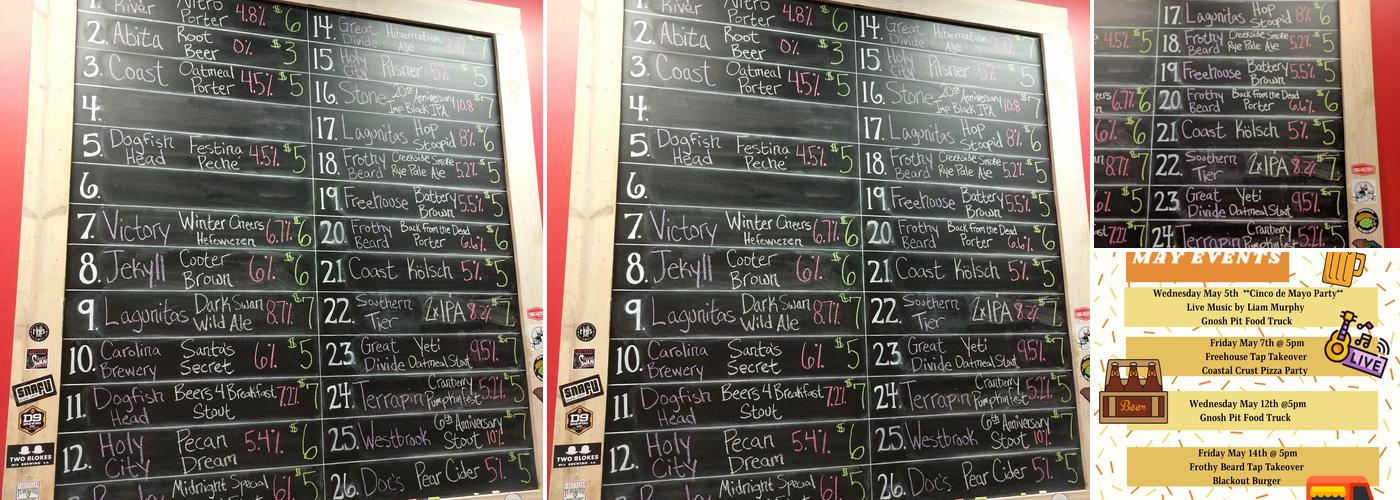 River Nitro Porter 4.8% $6
2. Abita Root Beer 0% $3
3. Coast Oatmeal Porter 4.5% $5
4.
5. Dogfish Head Festina Peche 4.5% $5
6.
7. Victory Winter Cheers Hefeweizen 6.7% $6
8. Jekyll Cooter Brown 6% $6
9. Lagunitas Dark Swan Wild Ale 8.7% $7
10. Carolina Brewery Santa's Secret 6% $5
11. Dogfish Head Beers 4 Breakfast Stout 7.2% $7
12. Holy City Pecan Dream 5.4% $6
Midnight Special 6% $5
14. Great Divide Hibernation Ale $7
15. Holy City Pilsner 5% $5
16. Stone 20th Anniversary Imp. Black IPA 10.8 $7
17. Lagunitas Hop Stoopid 8% $6
18. Frothy Beard Creekside Smoke Rye Pale Ale 5.2% $5
19. Freehouse Battery Brown 5.5% $5
20. Frothy Beard Back From the Dead Porter 6.6% $6
21. Coast Kölsch 5% $5
22. Southern Tier 2xIPA 8.2% $7
23. Great Divide Yeti Oatmeal Stout 9.5% $7
24. Terrapin Cranberry Pumpkinfest 5.2% $5
25. Westbrook 6th Anniversary Stout 10% $7
26. Docs Pear Cider 5% $5
SNAFU
D9
TWO BLOKES
River Nitro Porter 4.8% $6
2. Abita Root Beer 0% $3
3. Coast Oatmeal Porter 4.5% $5
4.
5. Dogfish Head Festina Peche 4.5% $5
6.
7. Victory Winter Cheers Hefeweizen 6.7% $6
8. Jekyll Cooter Brown 6% $6
9. Lagunitas Dark Swan Wild Ale 8.7% $7
10. Carolina Brewery Santa's Secret 6% $5
11. Dogfish Head Beers 4 Breakfast Stout 7.2% $7
12. Holy City Pecan Dream 5.4% $6
Midnight Special 6% $5
14. Great Divide Hibernation Ale $7
15. Holy City Pilsner 5% $5
16. Stone 20th Anniversary Imp. Black IPA 10.8 $7
17. Lagunitas Hop Stoopid 8% $6
18. Frothy Beard Creekside Smoke Rye Pale Ale 5.2% $5
19. Freehouse Battery Brown 5.5% $5
20. Frothy Beard Back From the Dead Porter 6.6% $6
21. Coast Kölsch 5% $5
22. Southern Tier 2xIPA 8.2% $7
23. Great Divide Yeti Oatmeal Stout 9.5% $7
24. Terrapin Cranberry Pumpkinfest 5.2% $5
25. Westbrook 6th Anniversary Stout 10% $7
26. Docs Pear Cider 5% $5
SNAFU
D9
TWO BLOKES
4.5% $5
6.7% $6
6% $6
8.7% $7
6% $5
7.2% $7
17. Lagunitas Hop Stoopid 8% $6
18. Frothy Beard Creekside Smoke Rye Pale Ale 5.2% $5
19. Freehouse Battery Brown 5.5% $5
20. Frothy Beard Back From the Dead Porter 6.6% $6
21. Coast Kölsch 5% $5
22. Southern Tier 2xIPA 8.2% $7
23. Great Divide Yeti Oatmeal Stout 9.5% $7
24. Terrapin Cranberry Pumpkinfest 5.2% $5
MAY EVENTS
Wednesday May 5th **Cinco de Mayo Party**
Live Music by Liam Murphy
Gnosh Pit Food Truck
Friday May 7th @ 5pm
Freehouse Tap Takeover
Coastal Crust Pizza Party
LIVE
Beer
Wednesday May 12th @5pm
Gnosh Pit Food Truck
Friday May 14th @ 5pm
Frothy Beard Tap Takeover
Blackout Burger